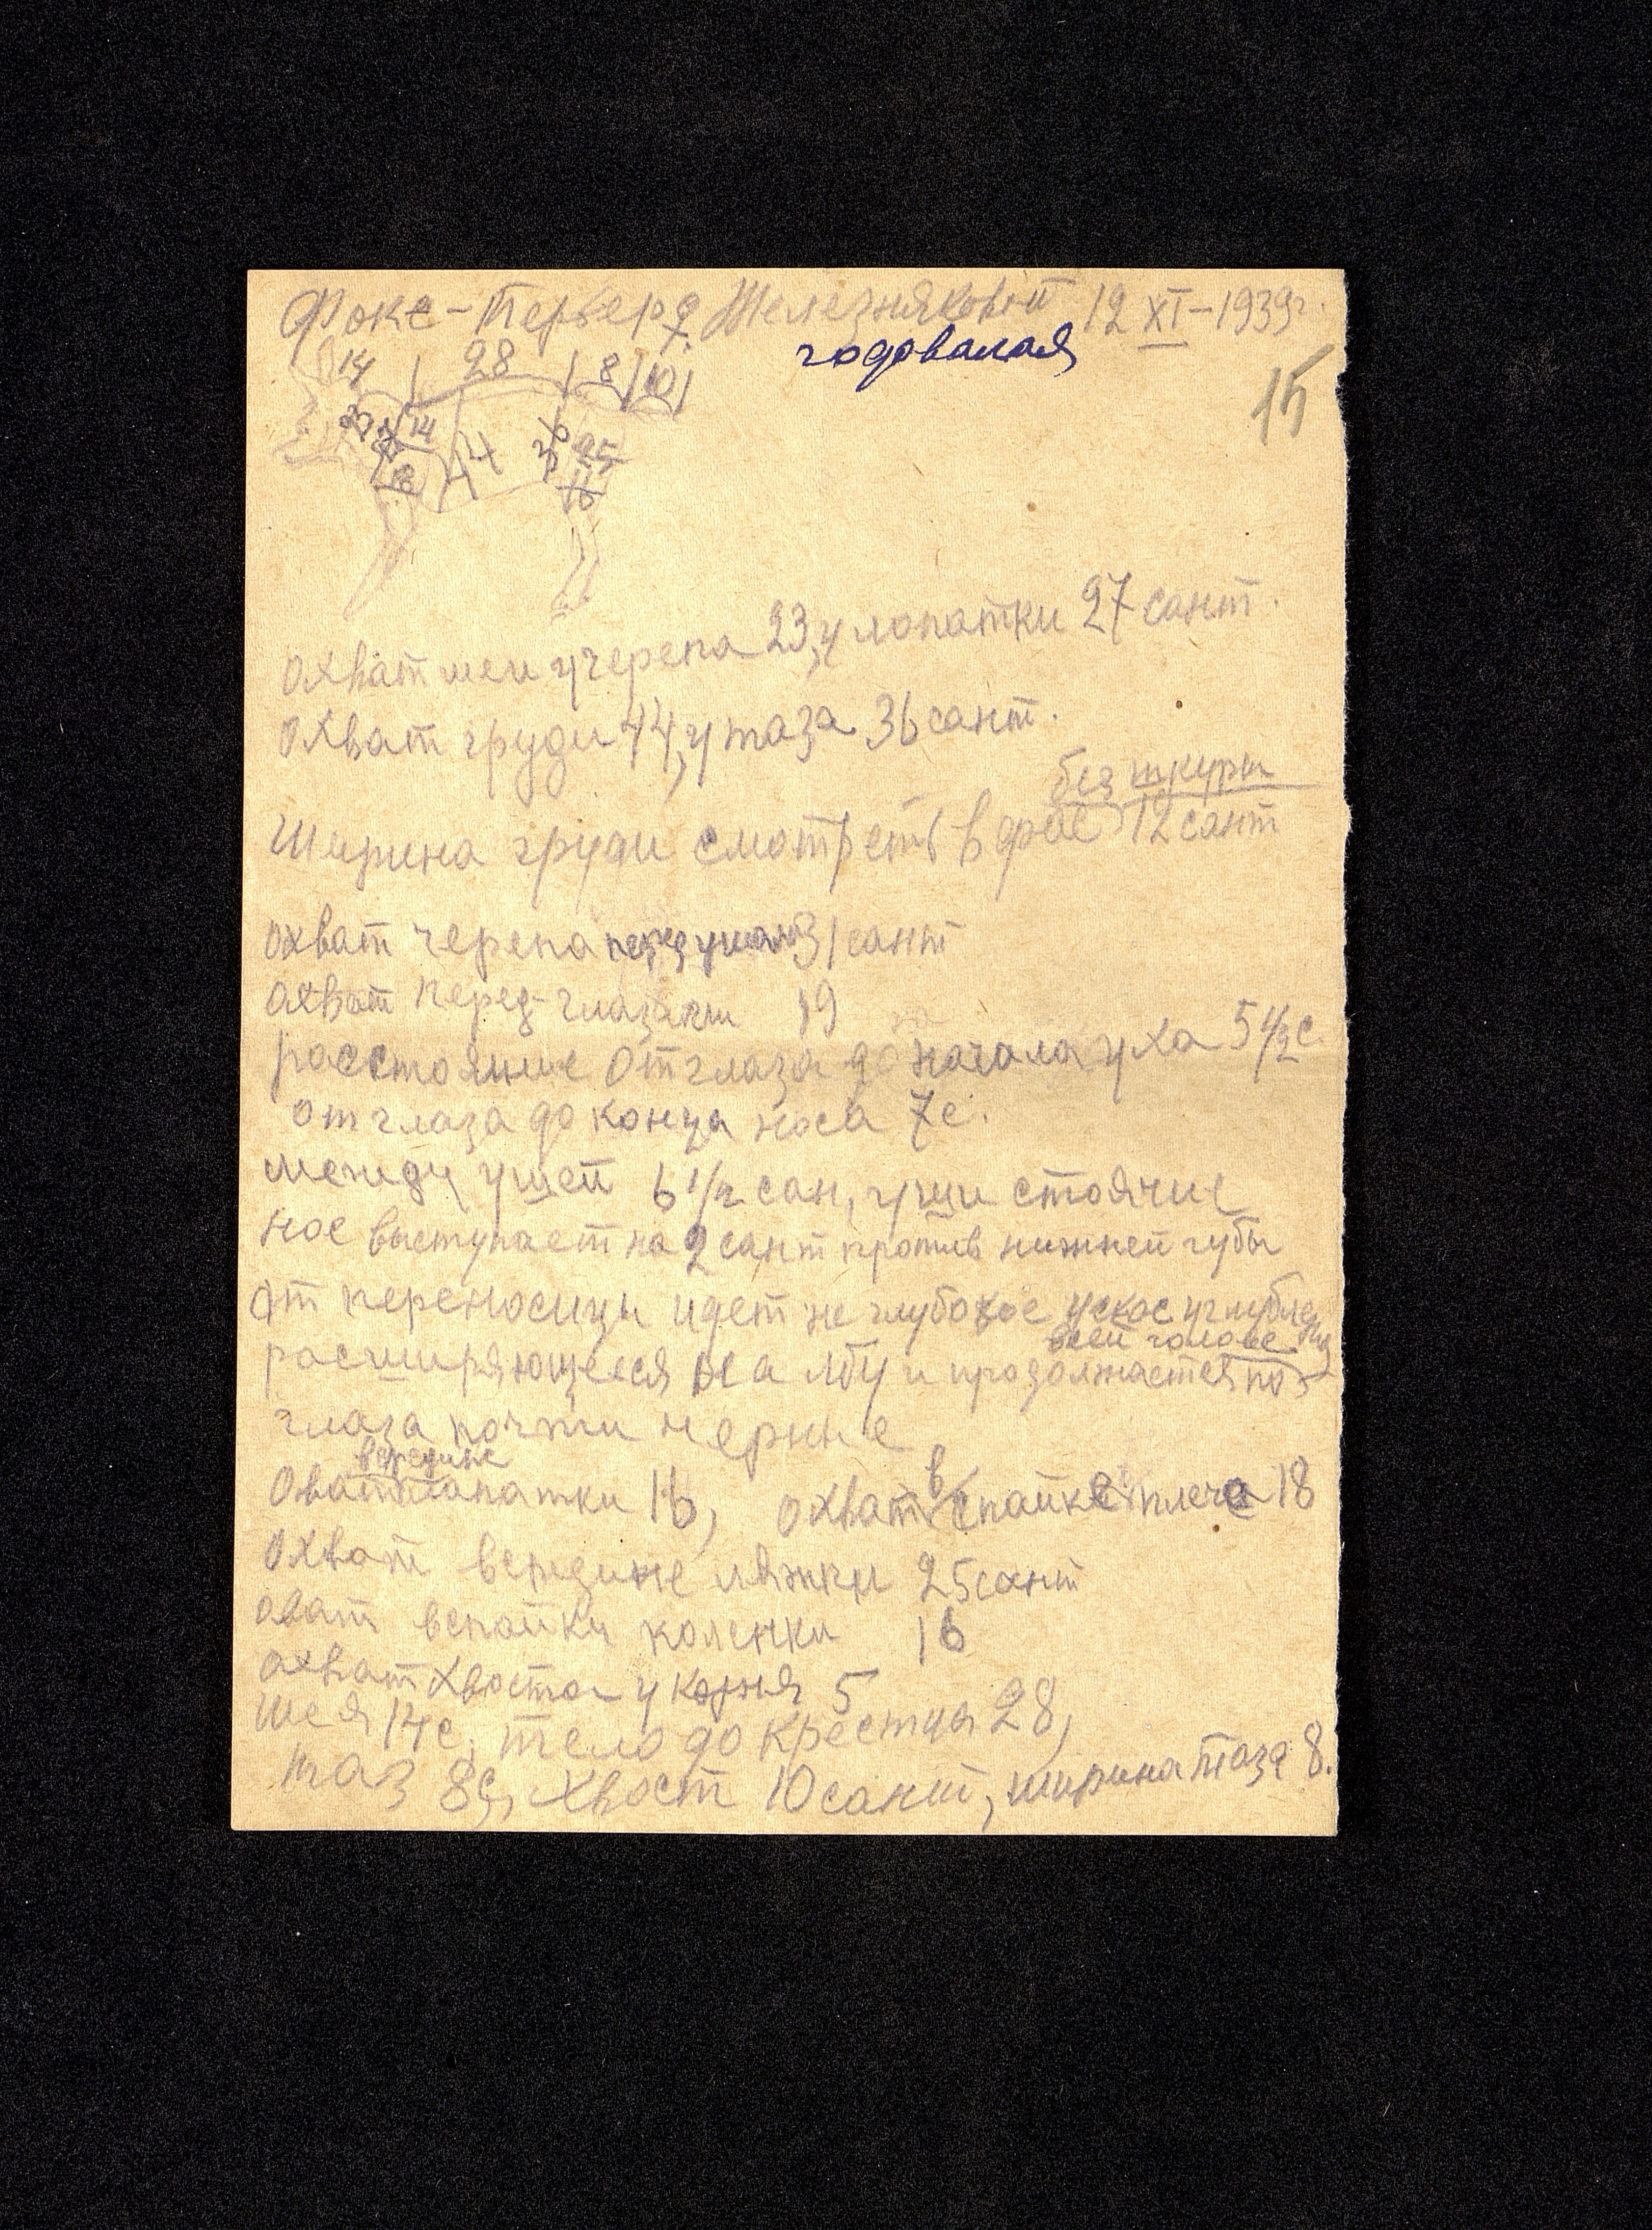 Фокс-терьер ♀ Железняковой 12 XI-1939г.
годовалая
15
14 28 8 10
23 27 14 44 36 25
18 16
Охват шеи у черепа 23, у лопатки 27 сант.
Охват груди 44, у таза 36 сант.
без шкуры
Ширина груди смотреть в фас 12 сант
охват черепа перед ушами 31 сант
охват перед глазами 19
расстояние от глаза до начала уха 5 1/2 с.
от глаза до конца носа 7 с.
между ушей 6 1/2 сан, уши стоячие
нос выступает на 2 сант против нижней губы
от переносицы идет не глубокое
всей голове
расширяющееся на лбу и продолжается по
глаза почти черные
в середине
Охват лопатки 16, охват в спайке плеча 18
Охват в середине ляжки 25 сант
оват в спайки коленки 16
охват хвоста у корня 5
шея 14 с, тело до крестца 28,
таз 8 с, хвост 10 сант, ширина таза 8.